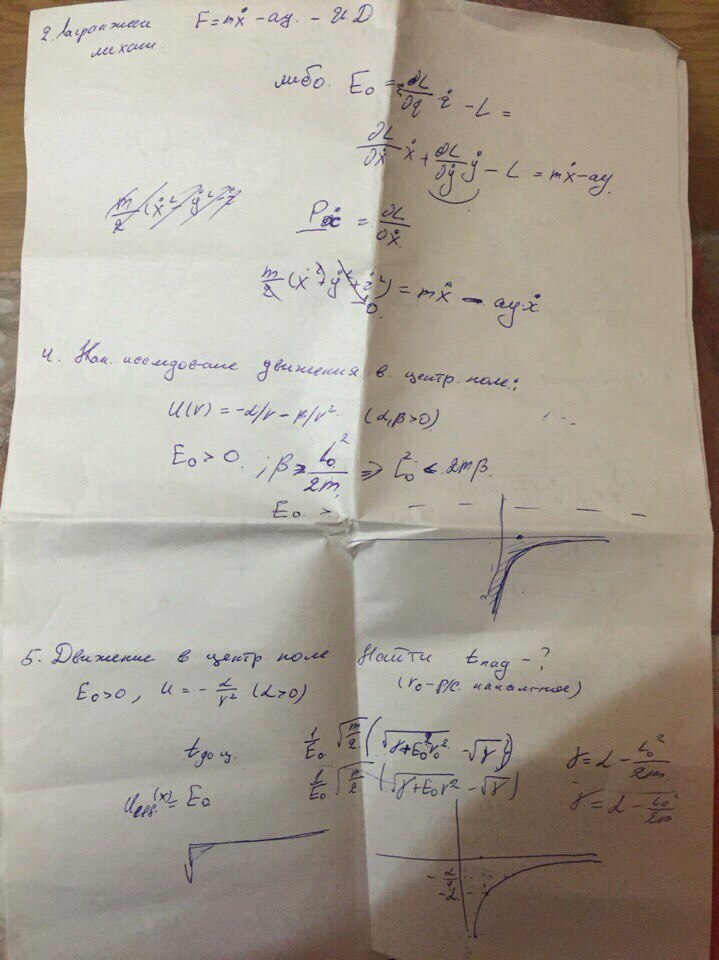 2. Лагранжев F = mẋ - ay. - И.Д
механ.
либо. E₀ = ∂L/∂q̇ q̇ - L =
∂L/∂ẋ ẋ + ∂L/∂ẏ ẏ - L = mẋ - ay.
m/2 (ẋ² ẏ²
Pẋ = ∂L/∂ẋ
m/2 (ẋ² + ẏ² + ż²) = mẋ - ayẋ
0
4. Кач. исследование движения в центр. поле:
U(r) = -α/r - β/r² (α, β > 0)
E₀ > 0. ; β > L₀²/2m ⇒ L₀² < 2mβ.
E₀ >
5. Движение в центр поле. Найти tпад - ?
E₀ > 0, U = - α/r² (α > 0) (r₀ - р/с. начальное)
tдо ц. 1/E₀ √m/2 (√γ + E₀r₀² - √γ) γ = α - L₀²/2m
Uэфф.(x) = E₀ 1/E₀ √m/2 (√γ + E₀r² - √γ) γ = α - L₀²/2m